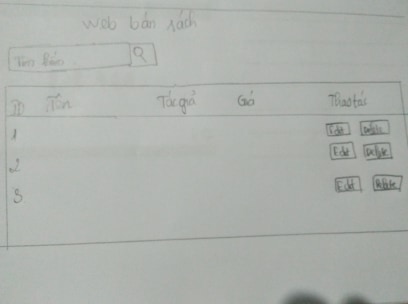 Web bán sách
Tìm kiếm
ID Tên Tác giả Giá Thao tác
1 Edit Delete
2 Edit Delete
3 Edit Delete